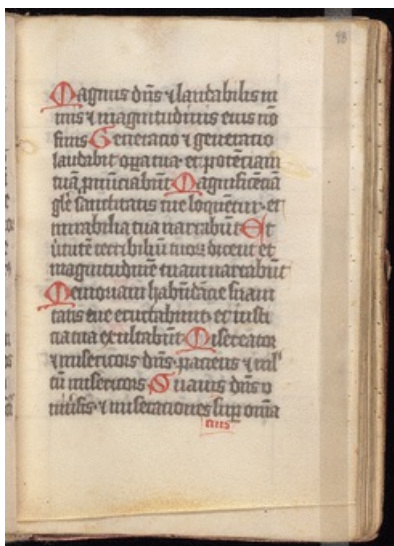 98
Magnus dn̄s ⁊ laudabilis ni
mis ⁊ magnitudinis eius nō
finis Generacio ⁊ generacio
laudabit oꝑa tua· et potēciam
tuā pnūciabūt Magnificēciā
gl̄e sanctitatis tue loquētur· et
mirabilia tua narrabūt Et
v̄tutē terribiliū tuoꝝ dicent et
magnitudinē tuam narrabūt
Memoriam habūdācie suaui
tatis tue eructabunt· et iusti
cia tua exultabūt Miserator
⁊ misericors dn̄s· paciens ⁊ ml̄
tū misericors Suauis dn̄s v
niuīsis· ⁊ miseraciones sup om̄ia
eius